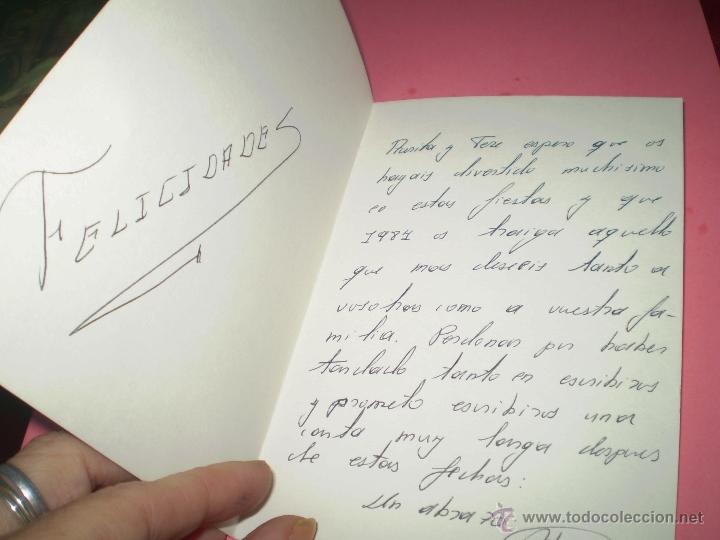 FELICIDADES
y Tere espero que os
hayais divertido muchisimo
en estas fiestas y que
1981 os traiga aquello
que mas deseeis tanto a
vosotras como a vuestra fa-
milia. Perdonar por haber
tardado tanto en escribiros
y prometo escribiros una
carta muy larga despues
de estas fechas:
un
www.todocoleccion.net